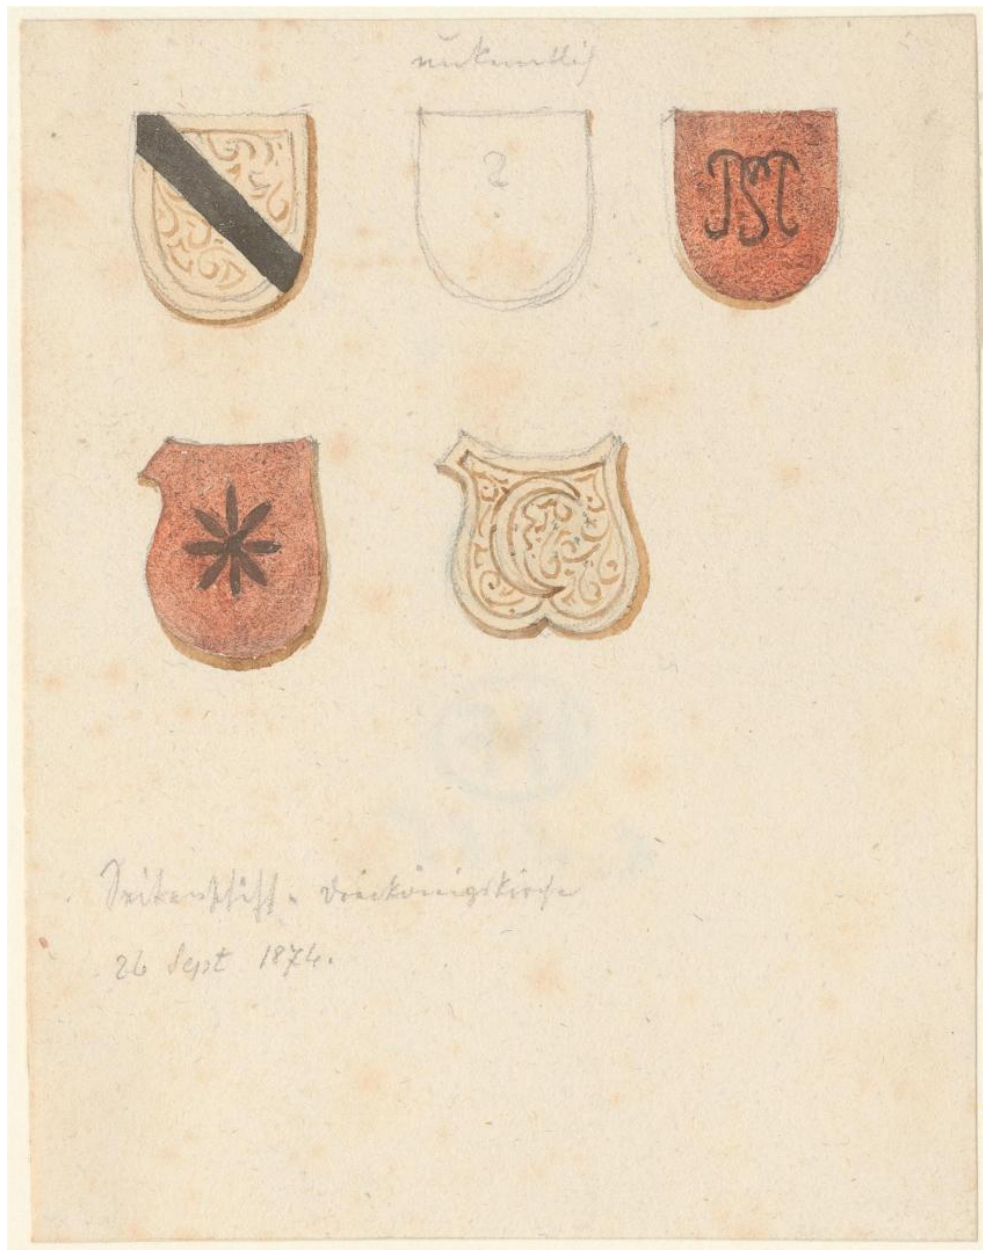 unkenntlich
?
Seitenschiff. Dreikönigskirche
26 Sept 1874.